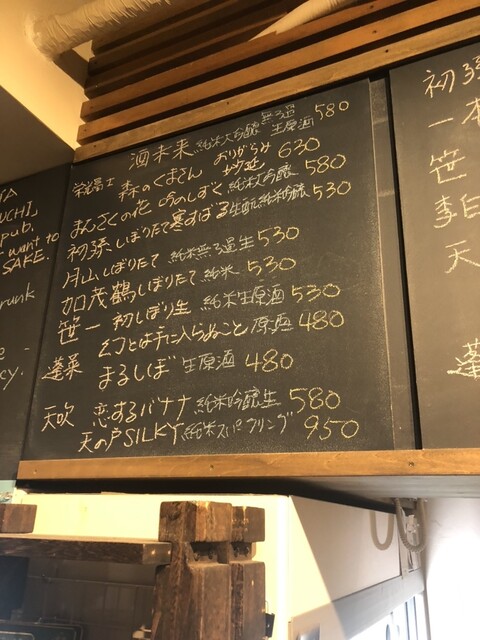 酒未来 純米大吟醸 無ろ過 生原酒 580
栄光冨士 森のくまさん おりがらみ 630
まんさくの花 純米大吟醸 580
初孫 しぼりたて 寒すばる 生酛純米吟醸 530
月山 しぼりたて 純米無ろ過生 530
加茂鶴 しぼりたて 純米 530
笹一 初しぼり生 純米生原酒 530
蓬莱 とは手に入らぬこと 原酒 480
まるしぼ 生原酒 480
天吹 恋するバナナ 純米吟醸生 580
天の戸 SILKY 純米スパークリング 950
TA
UCHI,
pub.
want to
SAKE.
runk
e
cy.
初孫
一
笹
李白
天
蓬